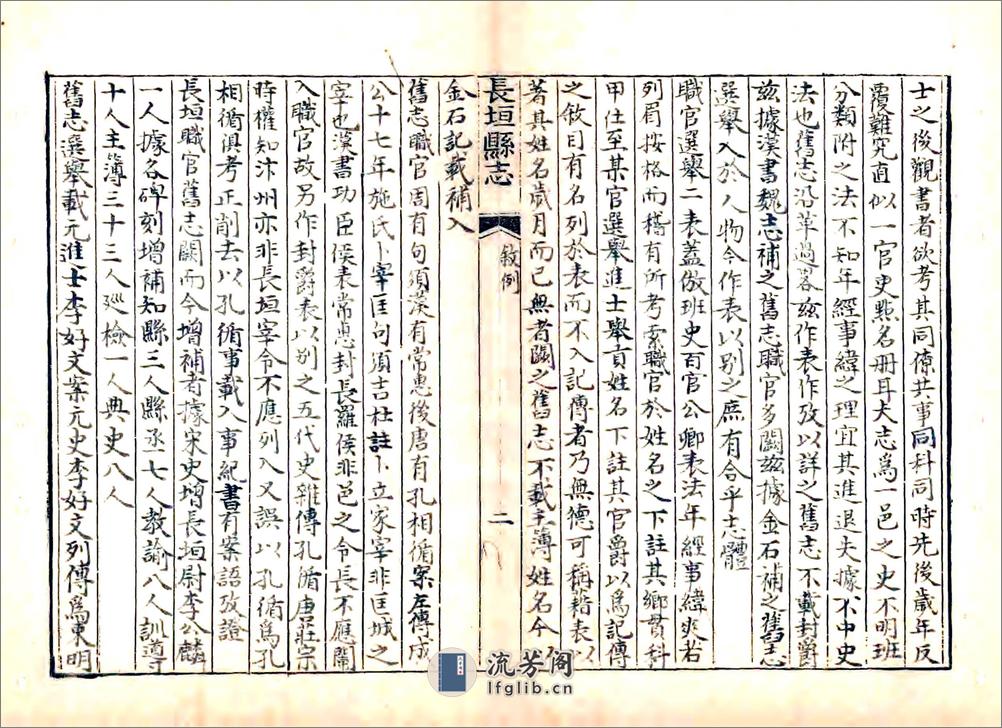 士之後觀書者欲考其同僚共事同科同時先後歲年反
覆難究直似一官吏點名冊耳夫志爲一邑之史不明班
分類附之法不知年經事緯之理宜其進退失據不中史
法也舊志沿革過畧茲作表作攷以詳之舊志不載封爵
茲據漢書魏志補之舊志職官多闕茲據金石補之舊志
選舉入於人物今作表以別之庶有合乎志體
職官選舉二表蓋倣班史百官公卿表法年經事緯爽若
列眉按格而稽有所考索職官於姓名之下註其鄉貫科
甲仕至某官選舉進士舉貢姓名下註其官爵以爲記傳
之敘目有名列於表而不入記傳者乃無德可稱藉表以
著其姓名歲月而已無者闕之舊志不載主簿姓名今
長垣縣志
敍例
二
金石記載補入
舊志職官周有句須漢有常惠後唐有孔相循案左傳成
公十七年施氏卜宰匡句須吉杜註卜立家宰非匡城之
宰也漢書功臣侯表常惠封長羅侯非邑之令長不應闌
入職官故另作封爵表以別之五代史雜傳孔循唐莊宗
時權知汴州亦非長垣宰令不應列入又誤以孔循爲孔
相循俱考正削去以孔循事載入事紀書有案語攷證
長垣職官舊志闕而今增補者據宋史增長垣尉李公麟
一人據各碑刻增補知縣三人縣丞七人教諭八人訓導
十人主簿三十三人廵檢一人典史八人
舊志選舉載元進士李好文案元史李好文列傳爲東明
流芳阁
lfglib.cn